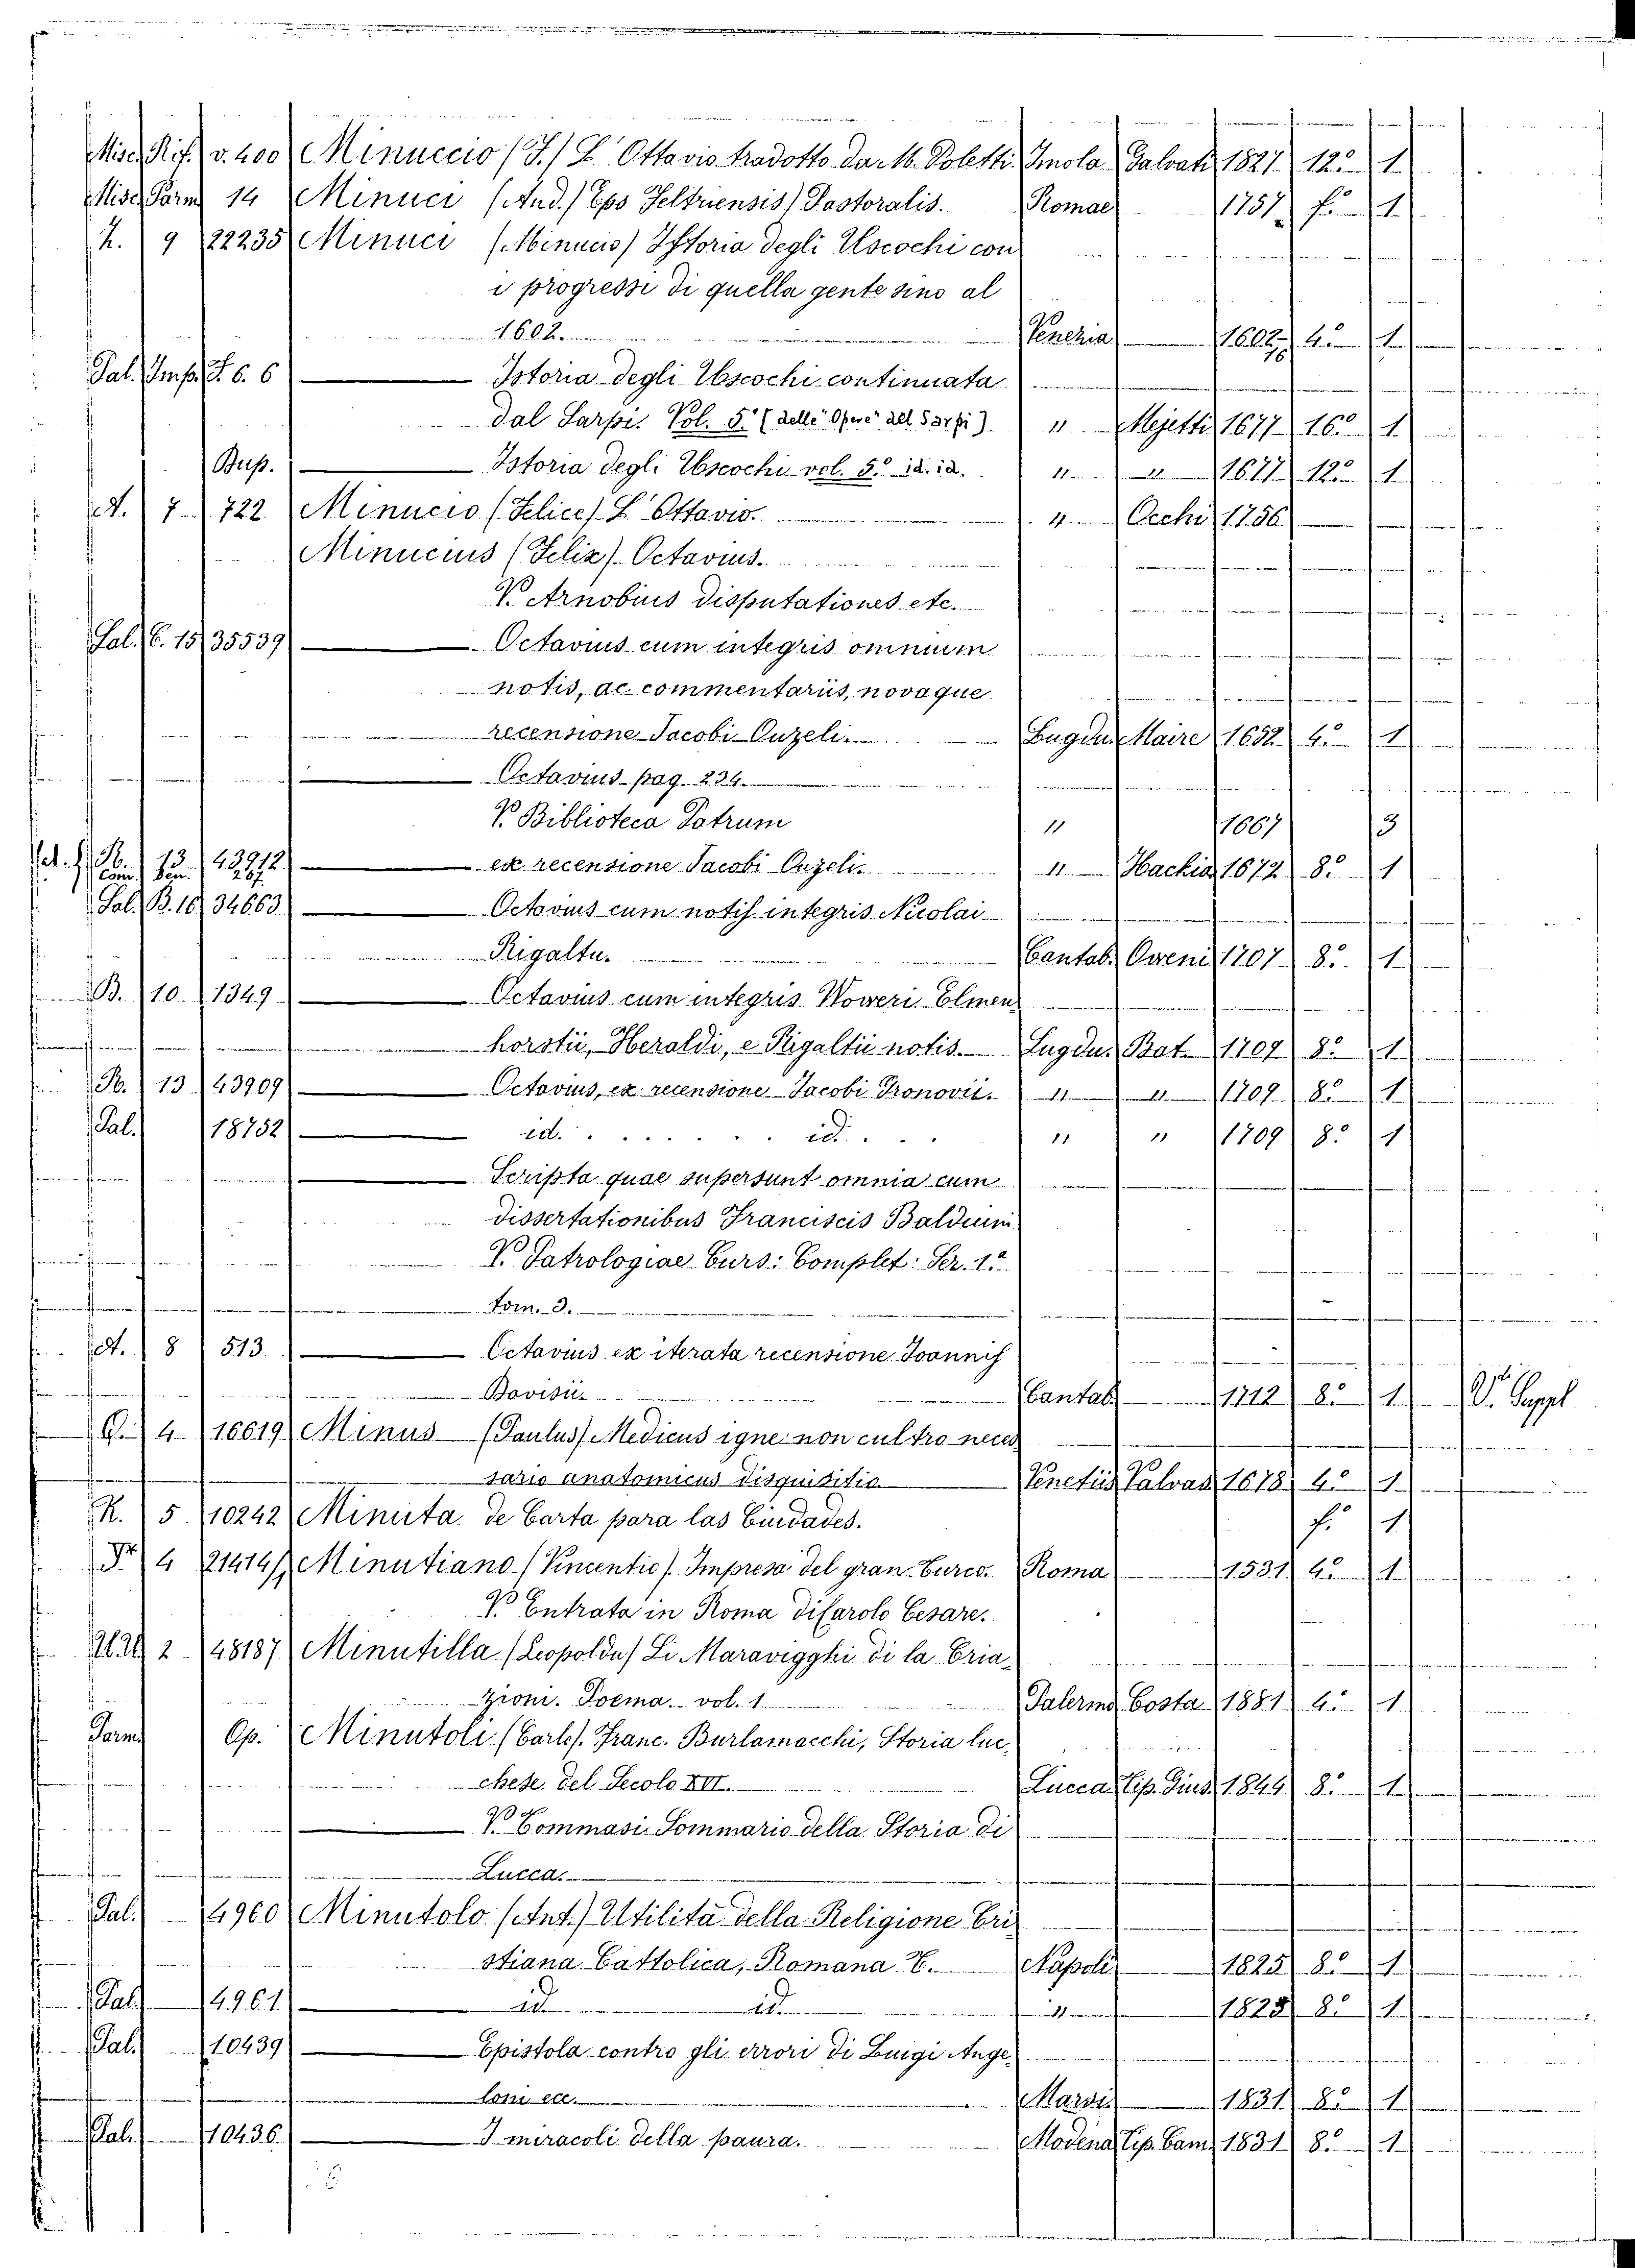 Misc. Rif. v. 400 Minuccio (F.) L'Ottavio tradotto da M. Poletti. Imola Galvati 1827 12.º 1
Misc. Parm. 14 Minuci (And.) Eps Feltriensis) Pastoralis. Romae 1757 f.º 1
Z. 9 22235 Minuci (Minucio) Istoria degli Uscochi con
i progressi di quella gente sino al
1602. Venezia 1602 4.º 1
Pal. Imp. F. 6. 6 Istoria degli Uscochi continuata
dal Sarpi. Vol. 5.º (delle "Opere" del Sarpi) " Mejetti 1677 16.º 1
Bup. Istoria degli Uscochi vol. 5.º id. id. " " 1677 12.º 1
A. 7 722 Minucio (Felice) L'Ottavio. " Occhi 1756
Minucius (Felix) Octavius.
V. Arnobius disputationes etc.
Pal. C. 15 35539 Octavius cum integris omnium
notis, ac commentariis, novaque
recensione Jacobi Ouzeli. Lugdu. Maire 1652 4.º 1
Octavius pag. 234.
V. Biblioteca Patrum " 1667 3
13 43912 ex recensione Jacobi Ouzeli. " Hackia 1672 8.º 1
Pal. B. 16 34663 Octavius cum notis integris Nicolai
Rigaltii. Cantab. Oweni 1707 8.º 1
B. 10 1349 Octavius cum integris Woweri Elmen
horstii, Heraldi, e Rigaltii notis. Lugdu. Bat. 1709 8.º 1
13 43909 Octavius, ex recensione Jacobi Gronovii. " " 1709 8.º 1
Pal. 18752 id. . . . . . . . id. . . . " " 1709 8.º 1
Scripta quae supersunt omnia cum
dissertationibus Franciscis Balduini
V. Patrologiae Curs: Complet: Ser. 1.ª
tom. 3.
A. 8 513 Octavius ex iterata recensione Joannis
Davisii. Cantab. 1712 8.º 1 V. Suppl.
Q. 4 16619 Minus (Paulus) Medicus igne non cultro neces
sario anatomicus disquisitio Venetiis Valvas. 1678 4.º 1
R. 5 10242 Minuta de Carta para las Ciudades. f. 1
4 21414 Minutiano (Vincentio) Impresa del gran Turco. Roma 1531 4.º 1
V. Entrata in Roma di Carolo Cesare.
2 48187 Minutilla (Leopoldu) Li Maravigghi di la Cria
zioni. Poema. vol. 1 Palermo Costa 1881 4.º 1
Parm. Op. Minutoli (Carlo). Franc. Burlamacchi, Storia luc
chese del Secolo XVI. Lucca Tip. Gius. 1844 8.º 1
V. Tommasi Sommario della Storia di
Lucca.
Pal. 4960 Minutolo (Ant.) Utilità della Religione Cri
stiana Cattolica, Romana E. Napoli 1825 8.º 1
Pal. 4961 id. id. " 1825 8.º 1
Pal. 10439 Epistola contro gli errori di Luigi Ange
loni ecc. Marsi. 1831 8.º 1
Pal. 10436 I miracoli della paura. Modena Tip. Cam. 1831 8.º 1